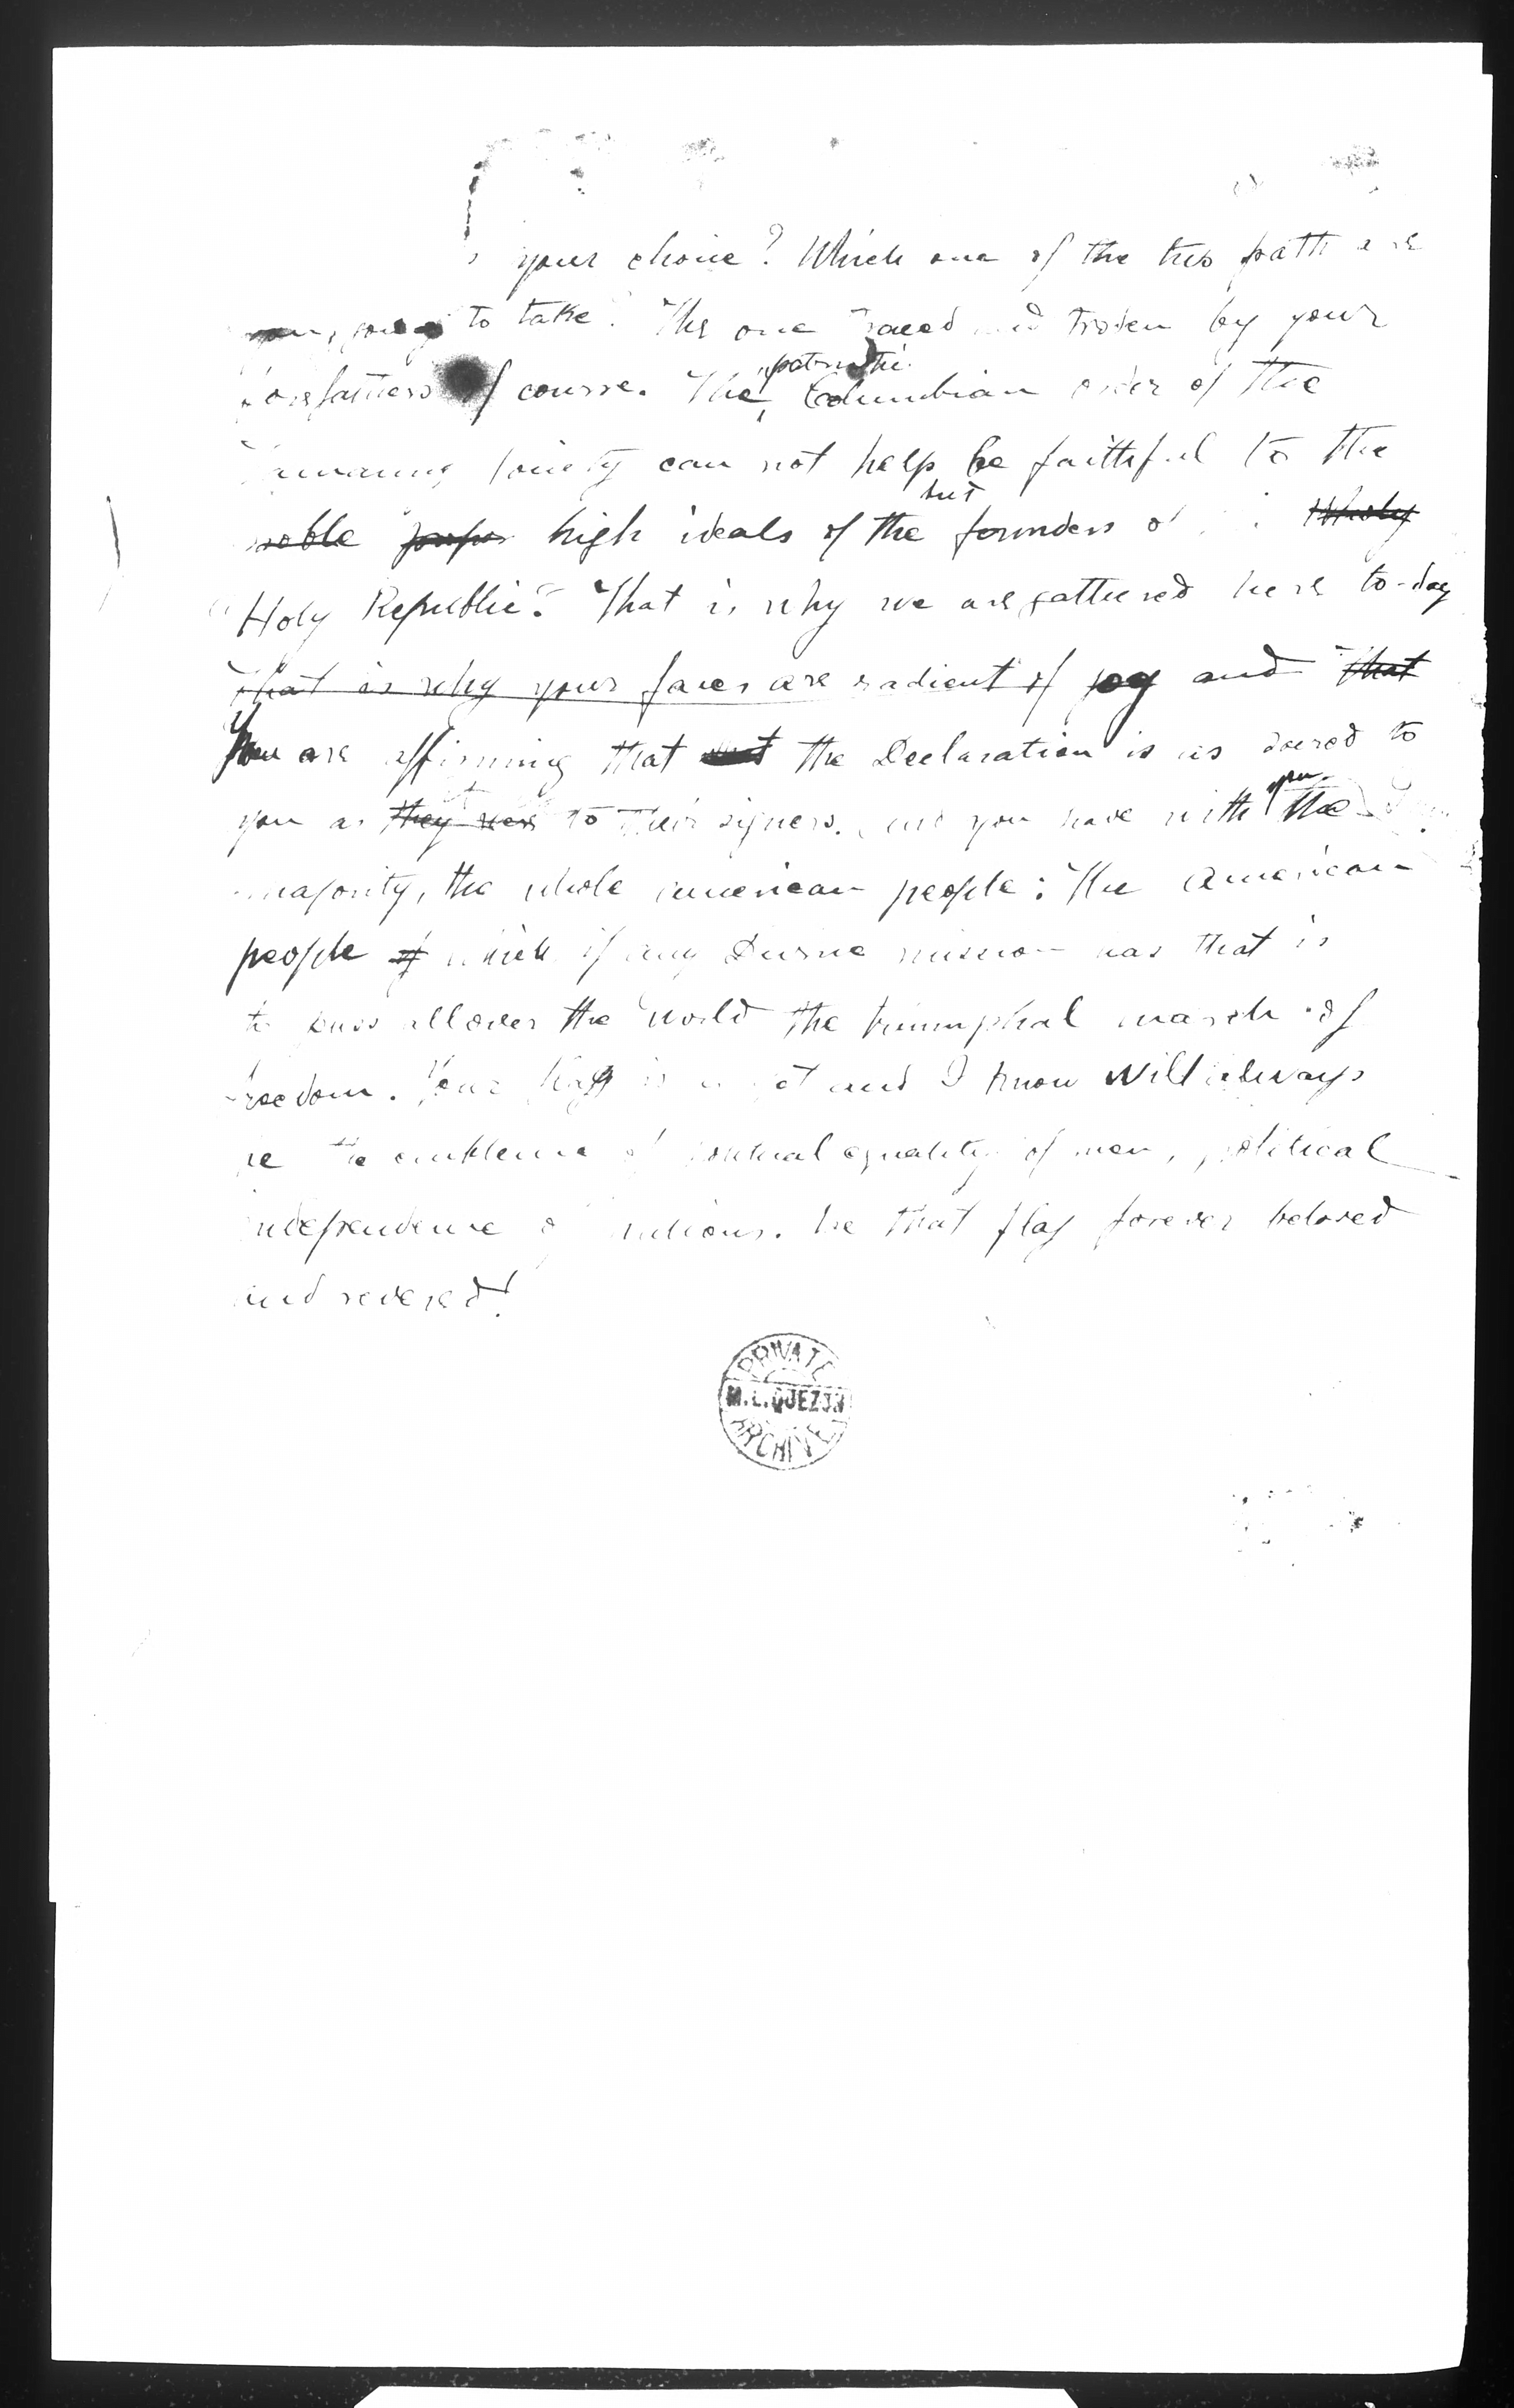 your choice? Which one of the two path are
you going to take? The one traced and troden by your
forefathers of course. The patriotic Columbian order of the
Tammany Society can not help but be faithful to the
noble high ideals of the founders of
"Holy Republic". That is why we are gathered here to-day
That is why your faces are radient of joy and that
You are affirming that the Declaration is as sacred to
you as they were to their signers. and you have with you the
majority, the whole american people: The American
people which if any Divine mission has that is
to pass all over the world the triumphal march of
freedom. Your flag is and I know will always
be the embleme of equality of men, political
independence of nations. be that flag forever beloved
and revered!
PRIVATE
M.L.QUEZON
ARCHIVES